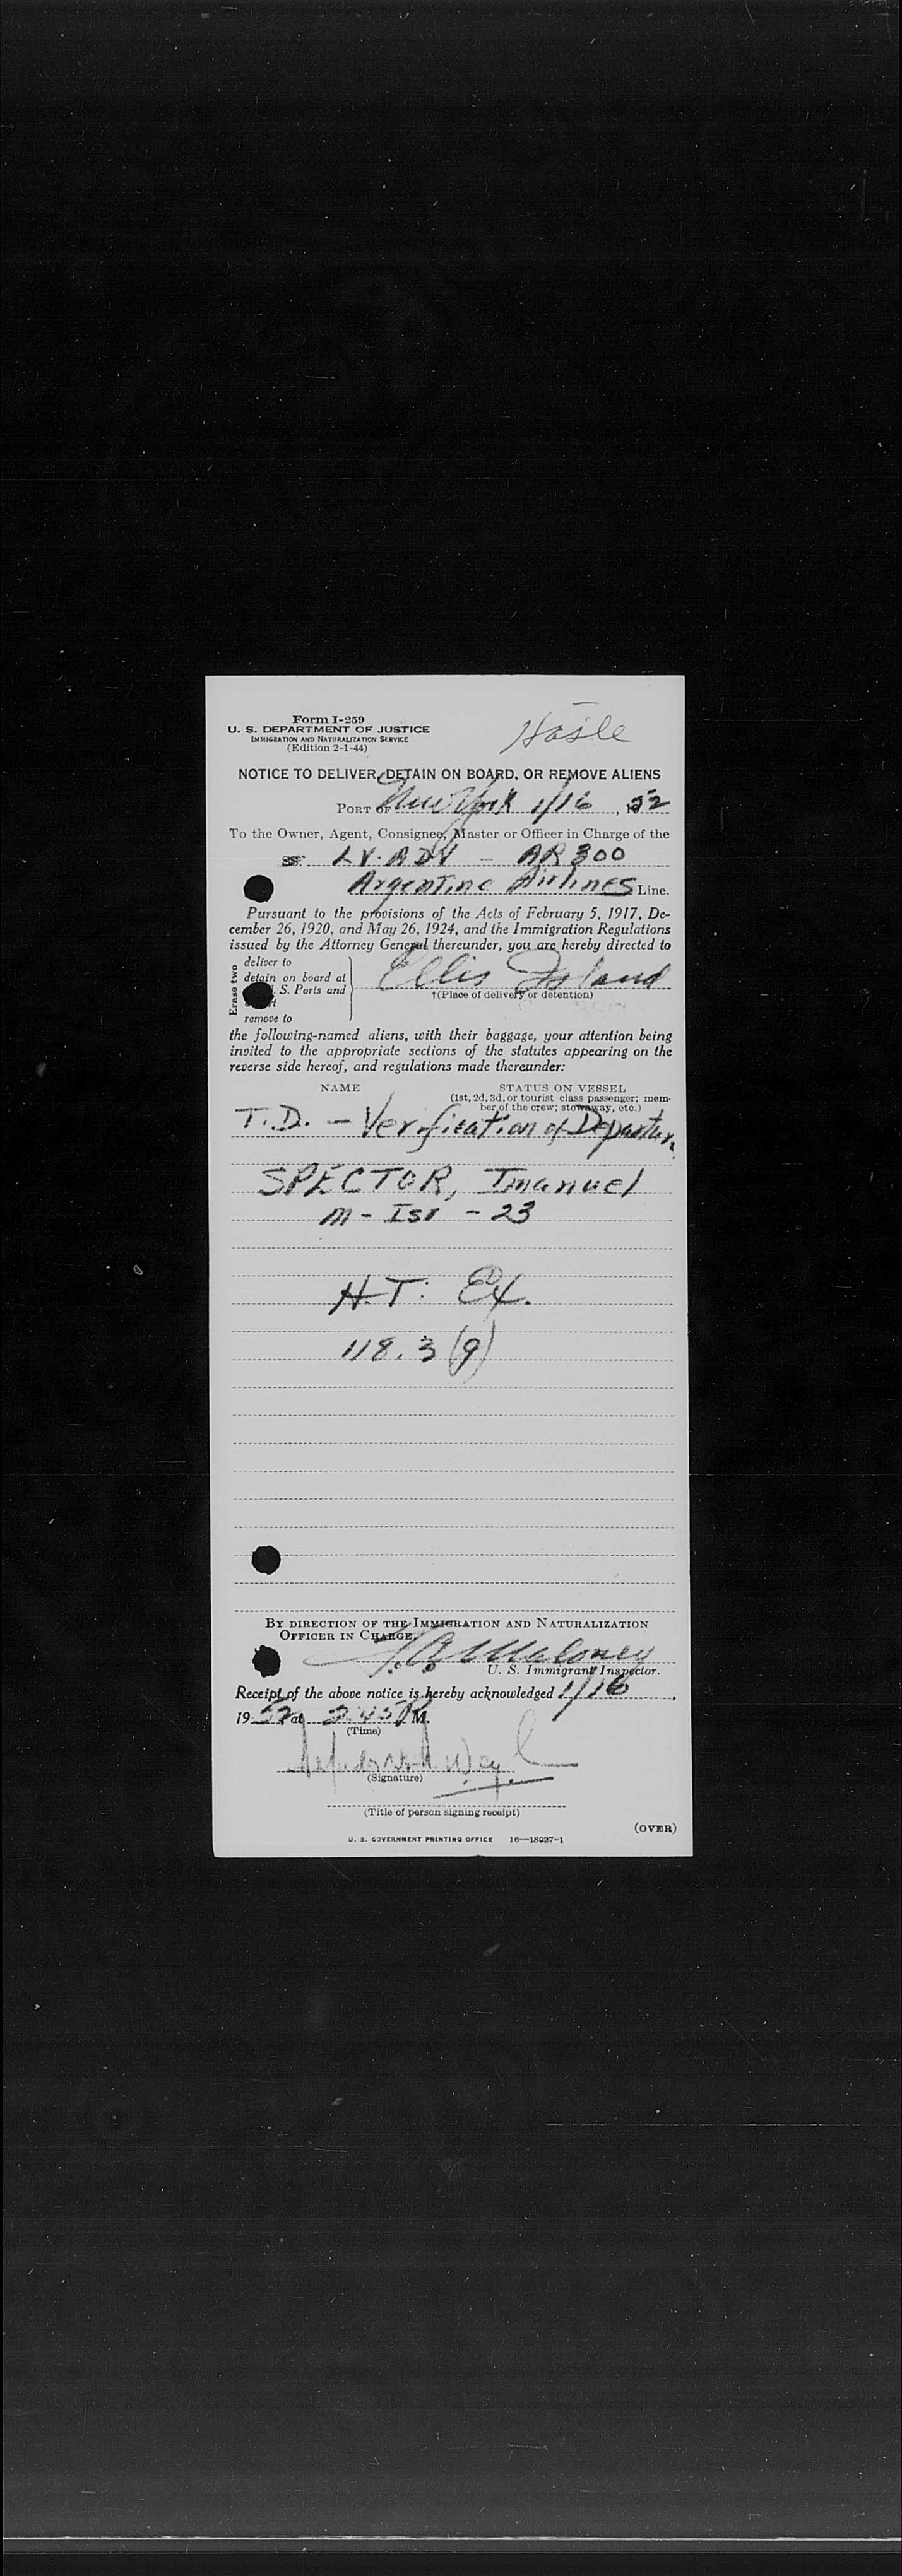 Form I-259
U. S. DEPARTMENT OF JUSTICE
IMMIGRATION AND NATURALIZATION SERVICE
(Edition 2-1-44)
NOTICE TO DELIVER, DETAIN ON BOARD, OR REMOVE ALIENS
PORT OF New York 1/16, 52
To the Owner, Agent, Consignee, Master or Officer in Charge of the
SS. LV-ADV - AR 300
Argentine Airlines Line.
Pursuant to the provisions of the Acts of February 5, 1917, De-
cember 26, 1920, and May 26, 1924, and the Immigration Regulations
issued by the Attorney General thereunder, you are hereby directed to
Erase two
deliver to
detain on board at
S. Ports and
remove to
Ellis Island
†(Place of delivery or detention)
the following-named aliens, with their baggage, your attention being
invited to the appropriate sections of the statutes appearing on the
reverse side hereof, and regulations made thereunder:
NAME STATUS ON VESSEL
(1st, 2d, 3d, or tourist class passenger; mem-
ber of the crew; stowaway, etc.)
T.D. - Verification of Departure
SPECTOR, Imanuel
M - Isr - 23
H.T. Ex.
118.3 (g)
BY DIRECTION OF THE IMMIGRATION AND NATURALIZATION
OFFICER IN CHARGE,
Maloney
U. S. Immigrant Inspector.
Receipt of the above notice is hereby acknowledged 1/16,
19 52 at 2:45 P M.
(Time)
(Signature)
(Title of person signing receipt)
(OVER)
U. S. GOVERNMENT PRINTING OFFICE 16—18927-1